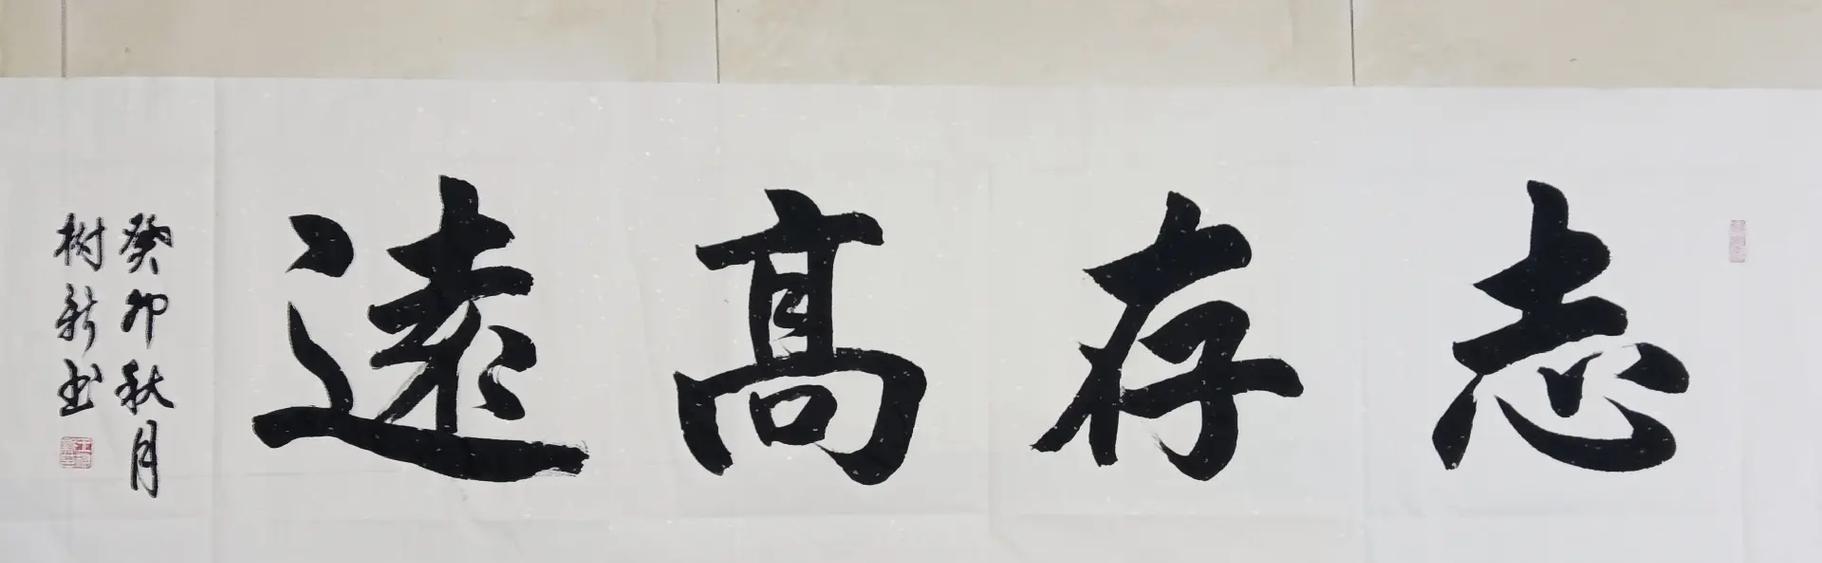 志存高遠
癸卯秋月
树新书